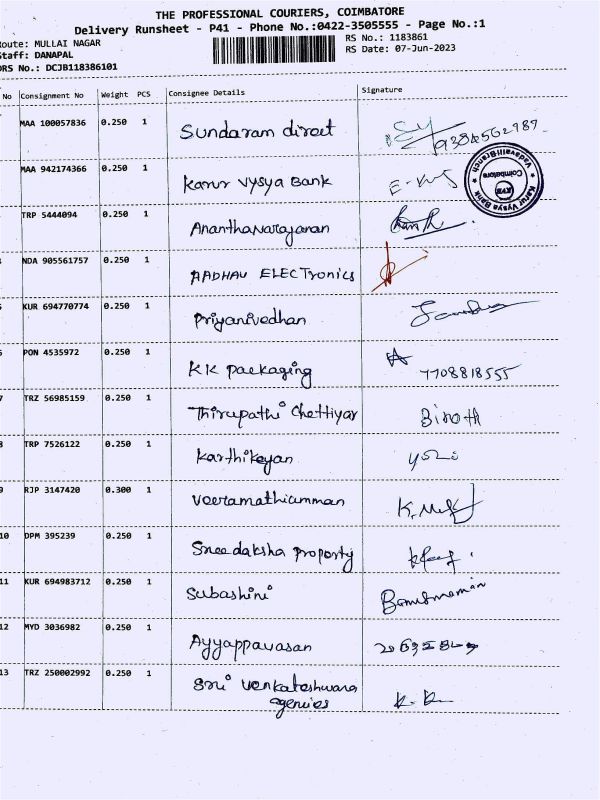 THE PROFESSIONAL COURIERS, COIMBATORE
Delivery Runsheet - P41 - Phone No.:0422-3505555 - Page No.:1
Route: MULLAI NAGAR
RS No.: 1183861
Staff: DANAPAL
RS Date: 07-Jun-2023
DRS No.: DCJB118386101
No Consignment No Weight PCS Consignee Details Signature
MAA 100057836 0.250 1 Sundaram direct 9384562987
MAA 942174366 0.250 1 Karur Vysya Bank
Karur Vysya Bank Coimbatore KVB Vadavalli Branch
TRP 5444094 0.250 1 Ananthanarayanan
NDA 905561757 0.250 1 AADHAV ELECTronics
KUR 694770774 0.250 1 Priyanivedhan
PON 4535972 0.250 1 KK packaging 7708818555
7 TRZ 56985159 0.250 1 Thirupathi Chettiyar
8 TRP 7526122 0.250 1 Karthikeyan
9 RJP 3147420 0.300 1 Veeramathiamman
10 DPM 395239 0.250 1 Sree daksha property
11 KUR 694983712 0.250 1 Subashini
12 MYD 3036982 0.250 1 Ayyappavasan
13 TRZ 250002992 0.250 1 Sri Venkateshwara
agencies